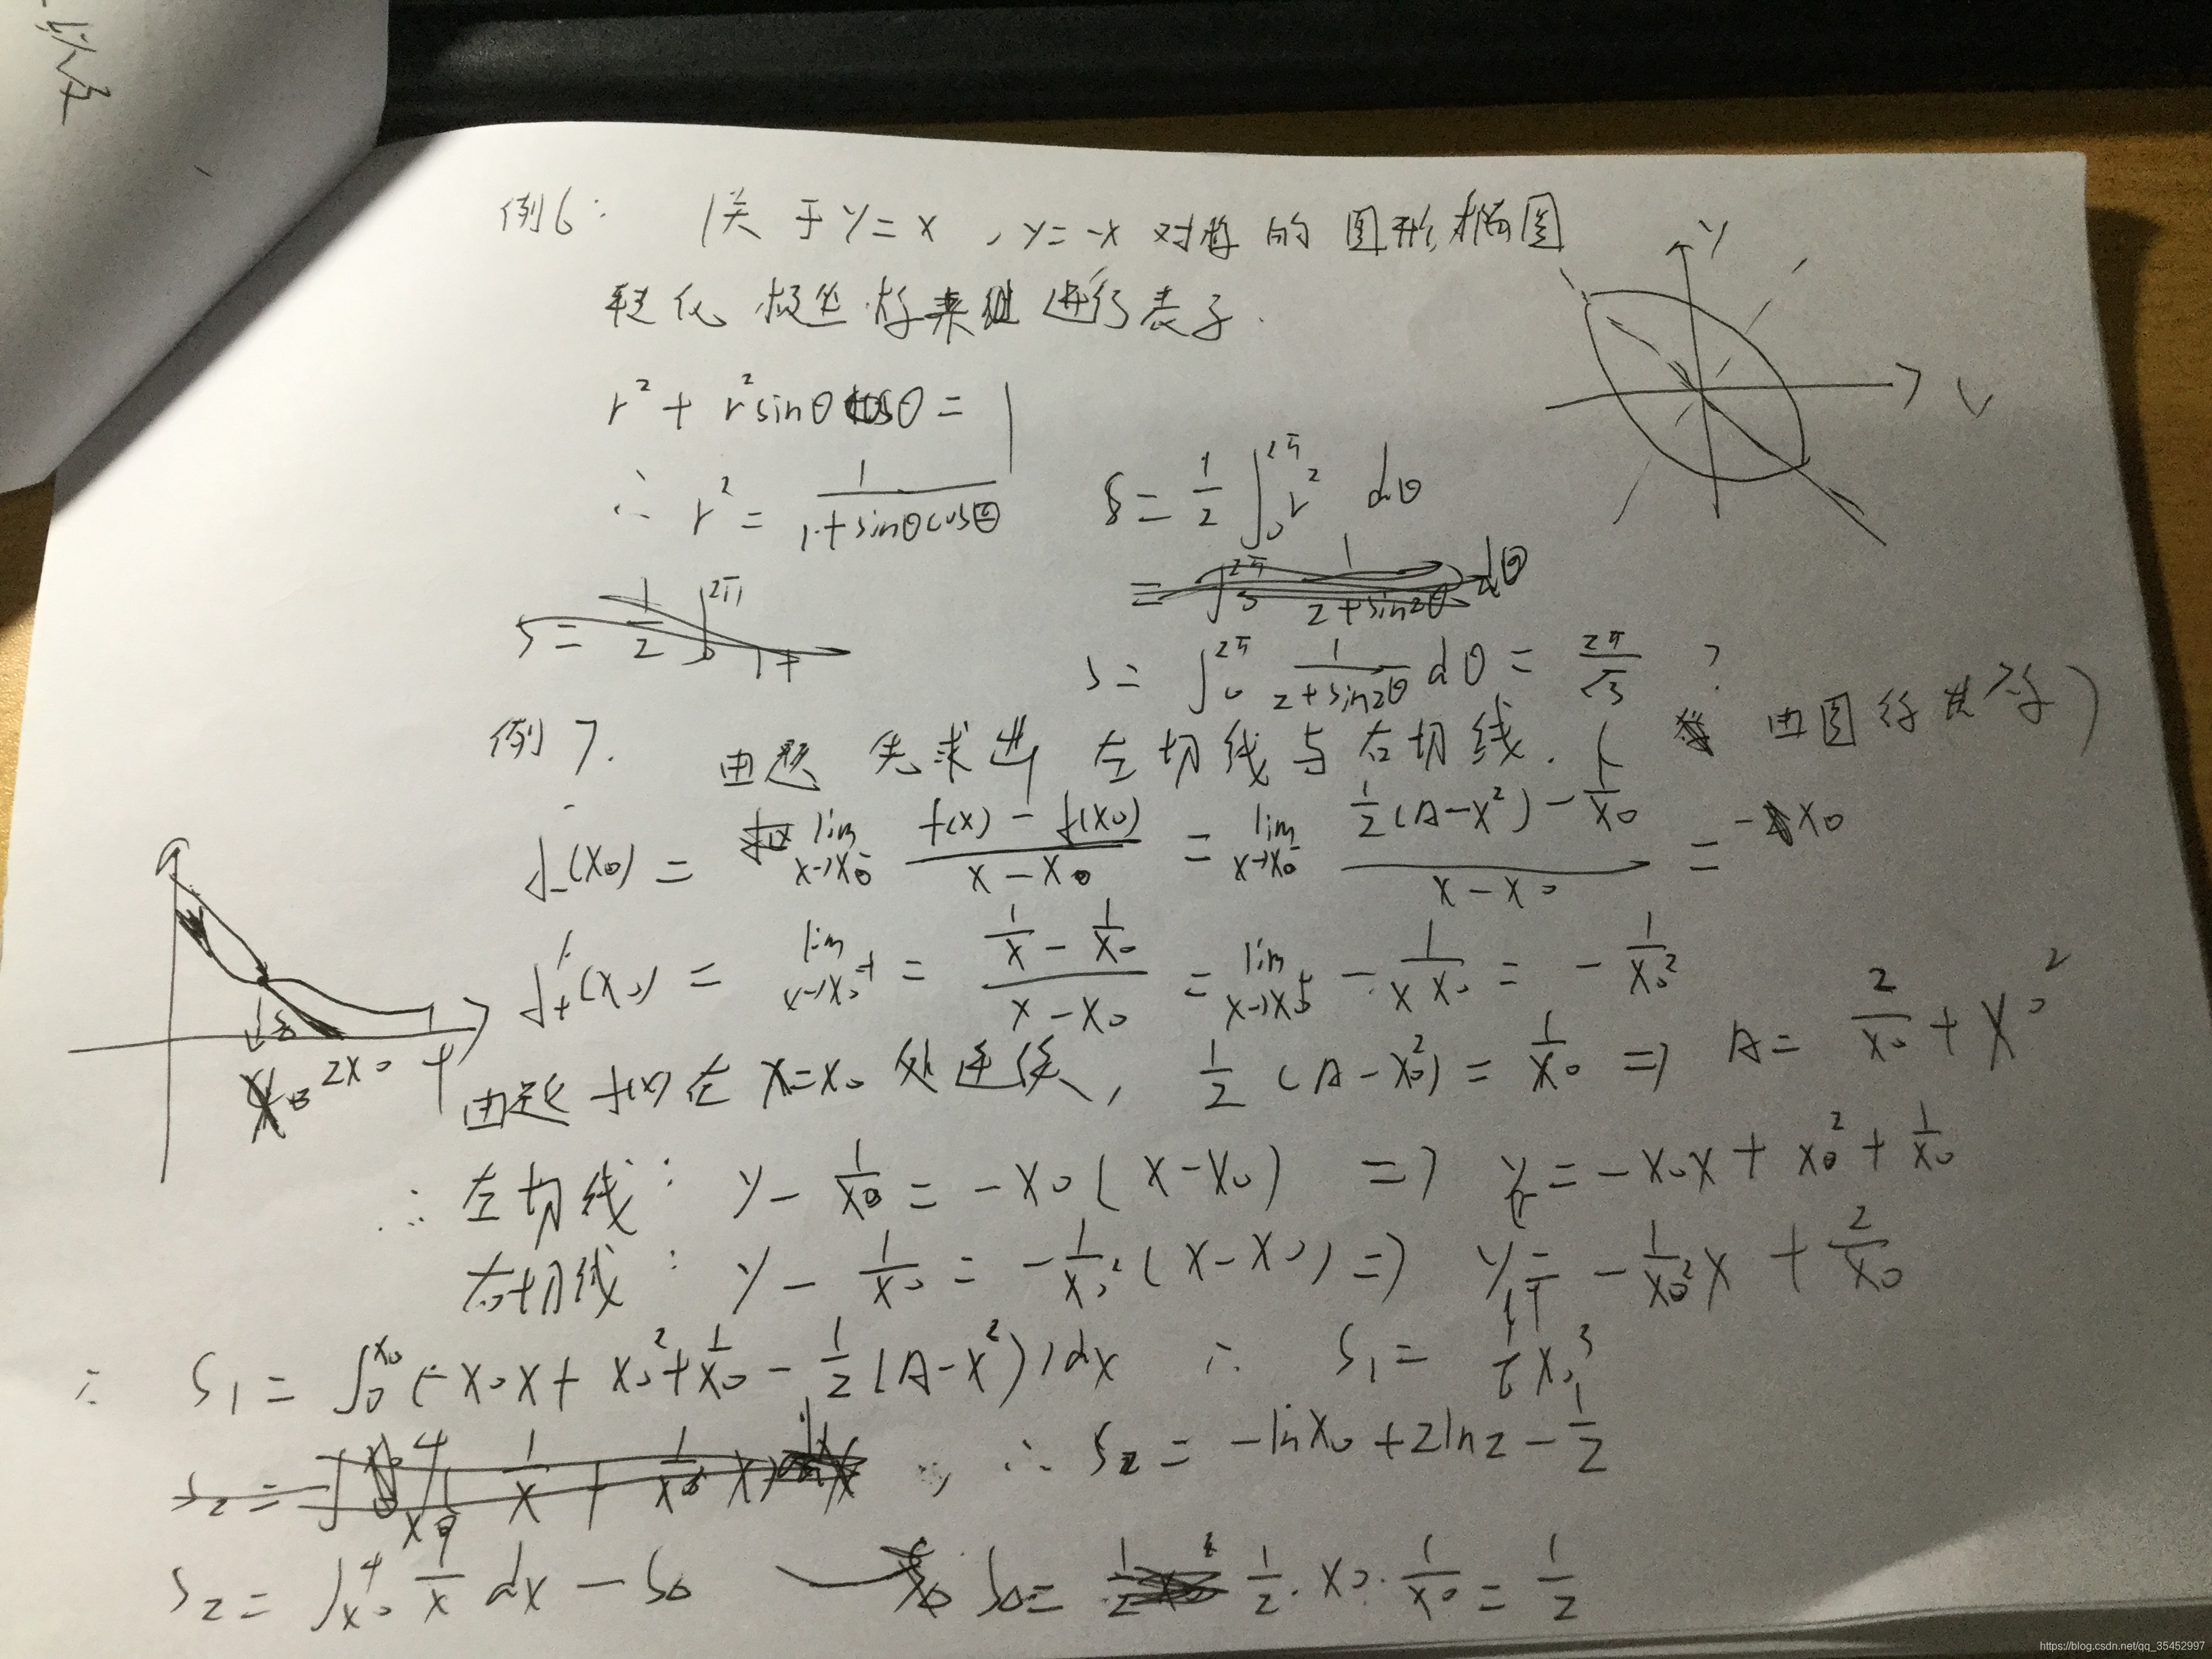 以及
例6: 关于y=x,y=-x对称的图形,椭圆
转化极坐标来进行表示.
r²+r²sinθcosθ=1
∴ r²=1/(1+sinθcosθ) S=1/2∫₀^{2π} r² dθ
S=1/2∫₀^{2π} 1+
=∫₀^{2π} 1/(2+sin2θ) dθ
S=∫₀^{2π} 1/(2+sin2θ) dθ=2π/√3 ?
y
例7. 由题 先求出 左切线与右切线.( 由图得其
f₋'(x₀)= lim_{x→x₀⁻} (f(x)-f(x₀))/(x-x₀) = lim_{x→x₀⁻} (1/2(A-x²)-1/x₀)/(x-x₀) = -x₀
f₊'(x₀)= lim_{x→x₀⁺} = (1/x-1/x₀)/(x-x₀) = lim_{x→x₀⁺} -1/(x x₀) = -1/x₀²
x₀ 2x₀ 4
由题 f(x)在x=x₀处连续, 1/2(A-x₀²)=1/x₀ => A=2/x₀+x₀²
∴ 左切线: y-1/x₀=-x₀(x-x₀) => y=-x₀x+x₀²+1/x₀
右切线: y-1/x₀=-1/x₀²(x-x₀) => y=-1/x₀² x+2/x₀
∴ S₁=∫₀^{x₀}(-x₀x+x₀²+1/x₀-1/2(A-x²))dx ∴ S₁=1/6 x₀³
∴ S₂=-lnx₀+2ln2-1/2
S₂=∫_{x₀}^{4} 1/x dx-S₀ S₀=1/2·x₀·1/x₀=1/2
https://blog.csdn.net/qq_35452997